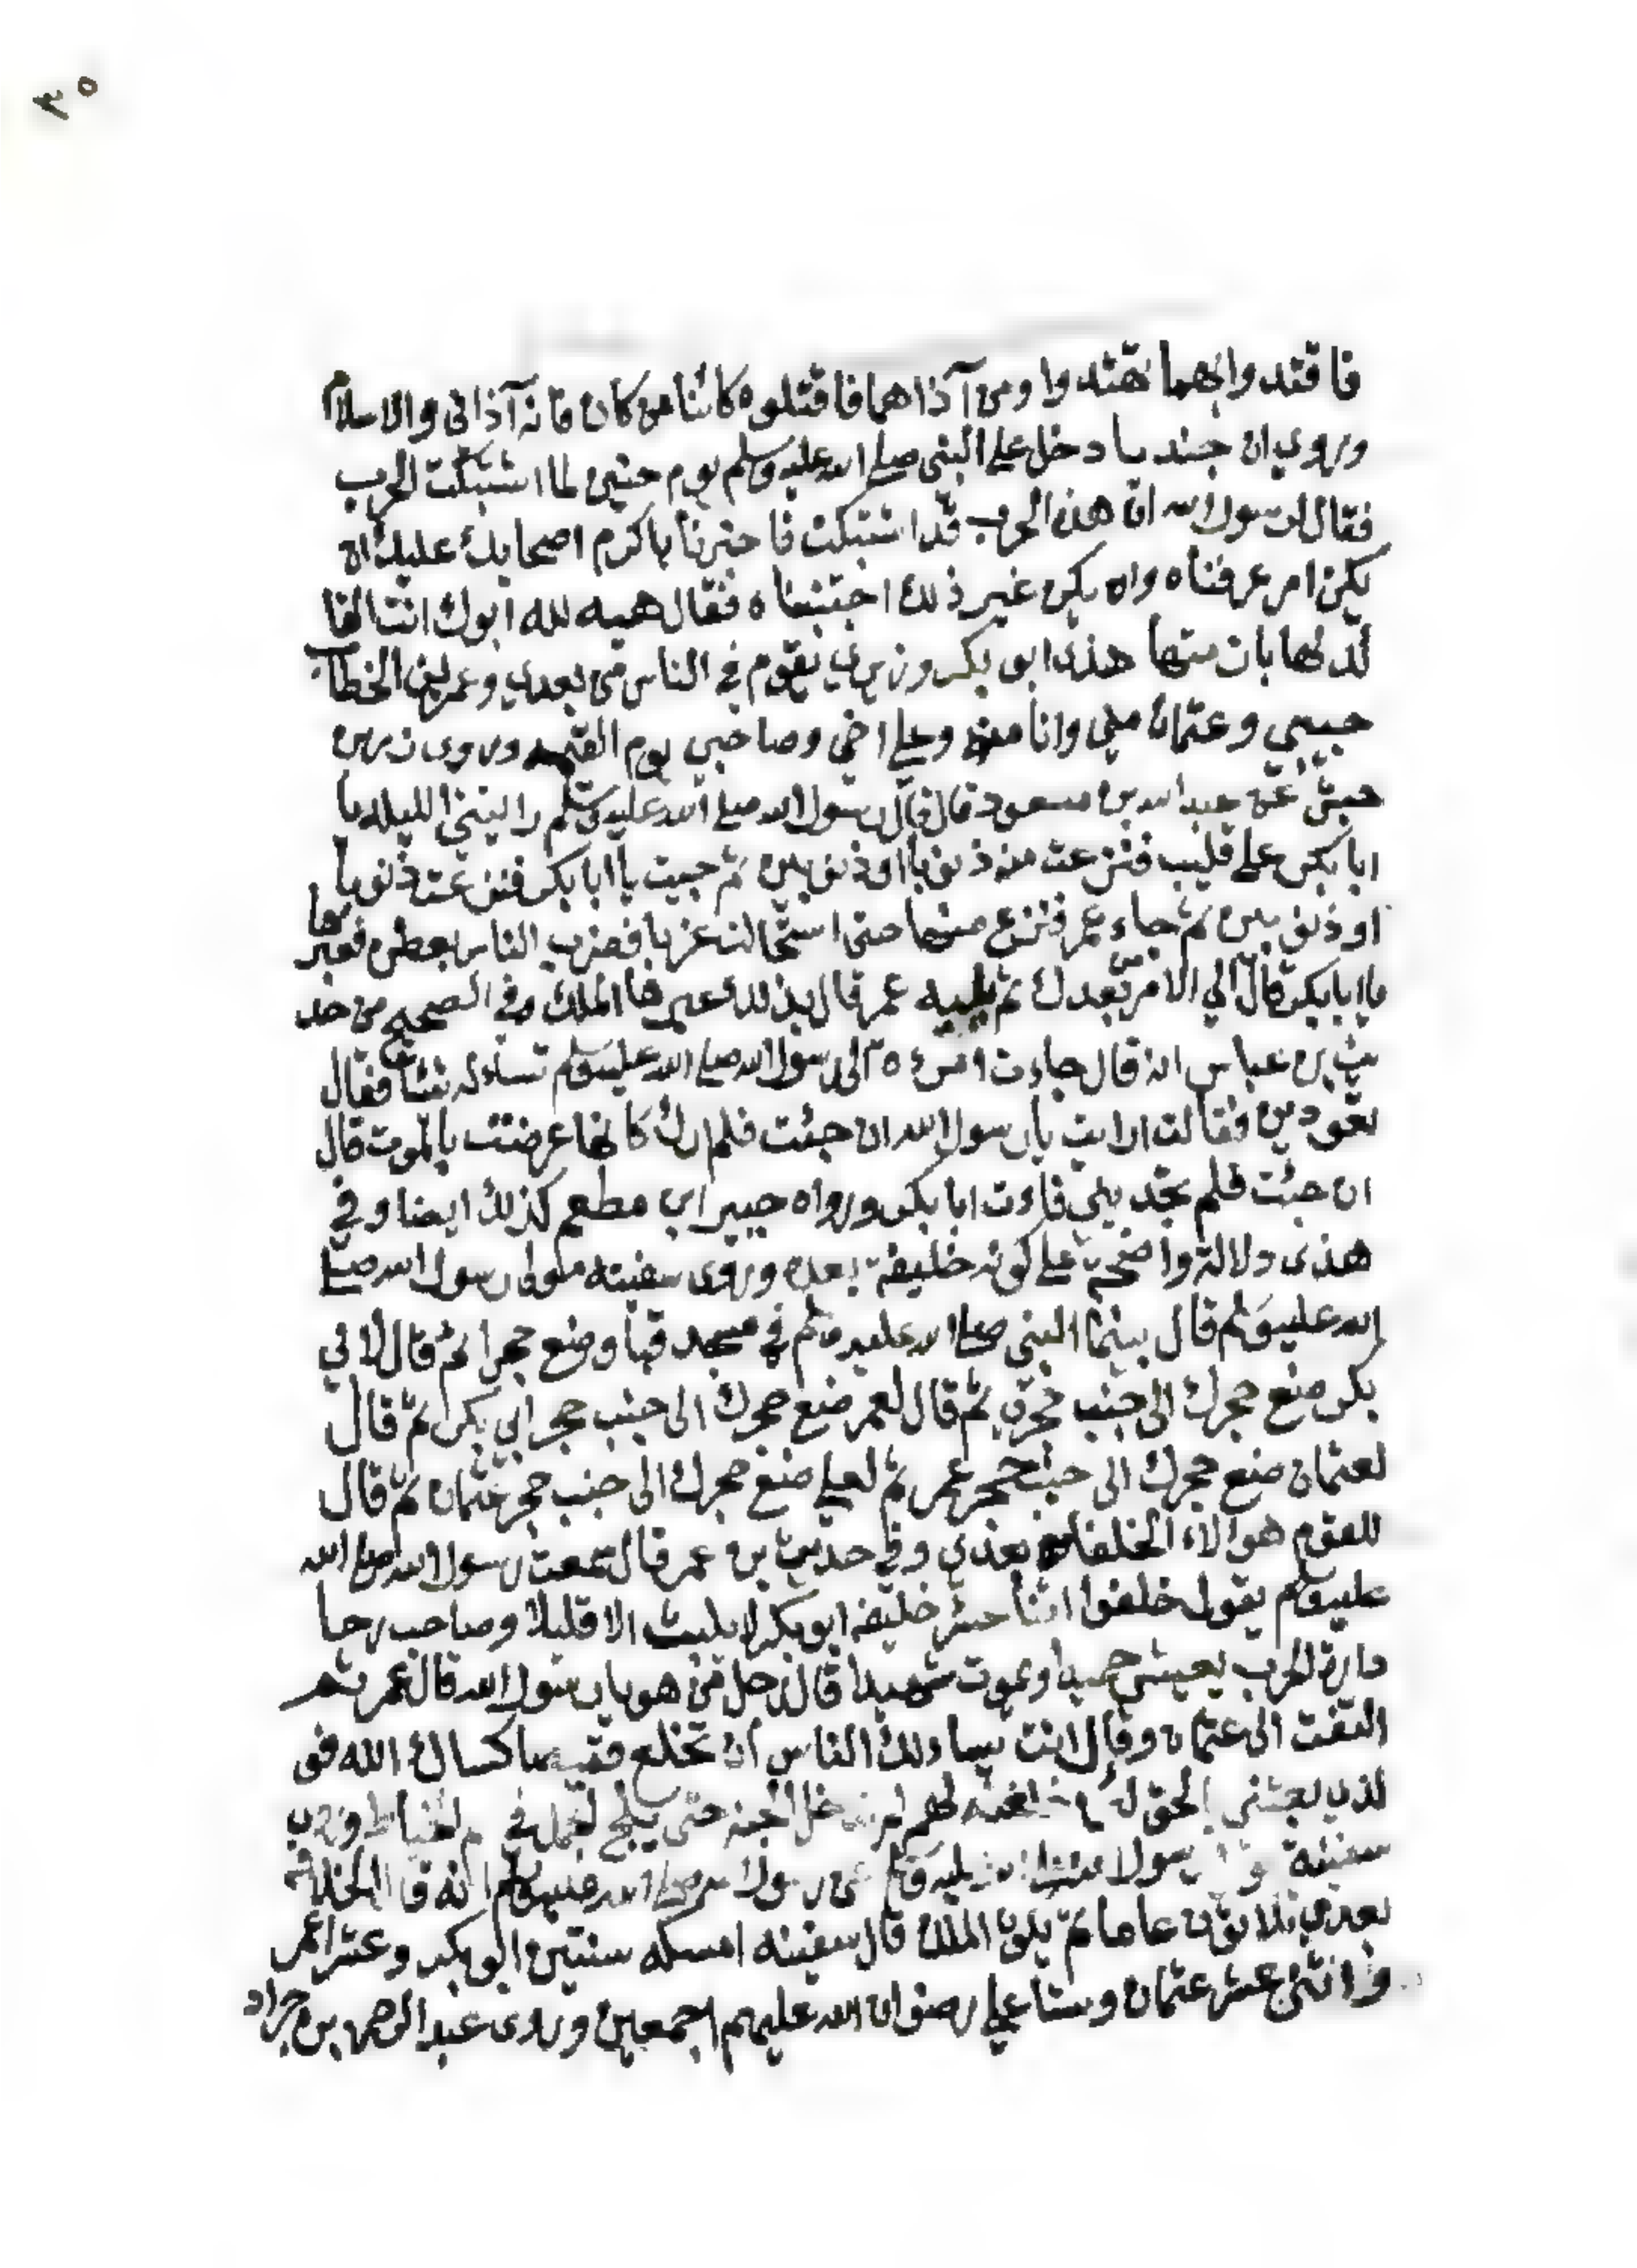 ٣٥
فاقتدوا بهما تهتدوا ومن آذاهما فاقتلوه كائنا من كان فانه آذانى والاسلام
وروي ان جند با دخل على النبى صلى الله عليه وسلم يوم حنين لما اشتبكت الحرب
فقال رسول الله ان هذه الحرب قد اشتبكت فاخبرنا باكرم اصحابك عليك ان
يكن امر عرفناه وان يكن غير ذلك اجتنبناه فقال هيه لله ابوك انت لها
هذه ابو بكر وزيري يقوم في الناس من بعدي وعمر بن الخطاب
حبيبي وعثمان منى وانا منه وعلى اخي وصاحبي يوم القيمه وروى زر بن
حبيش عن عبد الله بن مسعود قال قال رسول الله صلى الله عليه وسلم رايتنى الليله يا
ابا بكر على قليب فنزعت منه ذنوبا او ذنوبين ثم جيت يا ابا بكر فنزعت ذنوبا
او ذنوبين ثم جاء عمر فنزع منها حتى استحالت غربا فضرب الناس بعطن فعبرها
يا ابا بكر قال الي الامر من بعدك ثم يليه عمر قال بذلك عبرها الملك وفي الصحيح من حد
يث بن عباس انه قال جاءت امرءه الى رسول الله صلى الله عليه وسلم تساءله شيئا فقال
تعودين فقالت ارايت يا رسول الله ان جئت فلم ارك كانها عرضت بالموت قال
ان جئت فلم تجديني فاءت ابا بكر ورواه جبير ابن مطعم كذلك ايضا وفي
هذى دلالة واضحة على كونه خليفة بعده وروى سفينه مولى رسول الله صلى
الله عليه وسلم قال بينما النبي صلى الله عليه وسلم في مسجد قبا وضع حجرا ثم قال لابي
بكر ضع حجرك الى جنب حجري ثم قال لعمر ضع حجرك الى جنب حجر ابي بكر ثم قال
لعثمان ضع حجرك الى جنب حجر عمر ثم لعلي ضع حجرك الى جنب حجر عثمان ثم قال
للقوم هولاء الخلفاء بعدي وفي حديث بن عمر قال سمعت رسول الله صلى الله
عليه وسلم يقول خلفوا اثنا عشر خليفه ابو بكر لا يلبث الا قليلا وصاحب رحا
دارة الحرب يعيش حميدا ويموت شهيدا قال رجل من هو يا رسول الله قال عمر ثم
التفت الى عثمان وقال انت يساءلك الناس ان تخلع قميصا كساك الله فو
لذي بعثني بالحق لئن خلعته لهم لم تدخل الجنه حتى يلج الجمل في سم الخياط وروي
سفينة رسول عن رسول الله صلى الله عليه وسلم انه قال الخلافة
بعدي ثلاثون عاما ثم يكون الملك قال سفينه امسكه سنتين ابو بكر وعشرا عمر
واثنى عشر عثمان وستا على رضوان الله عليهم اجمعين وروى عبد الرحمن بن جراد